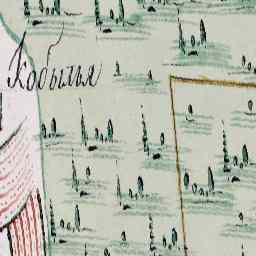 Кобылья